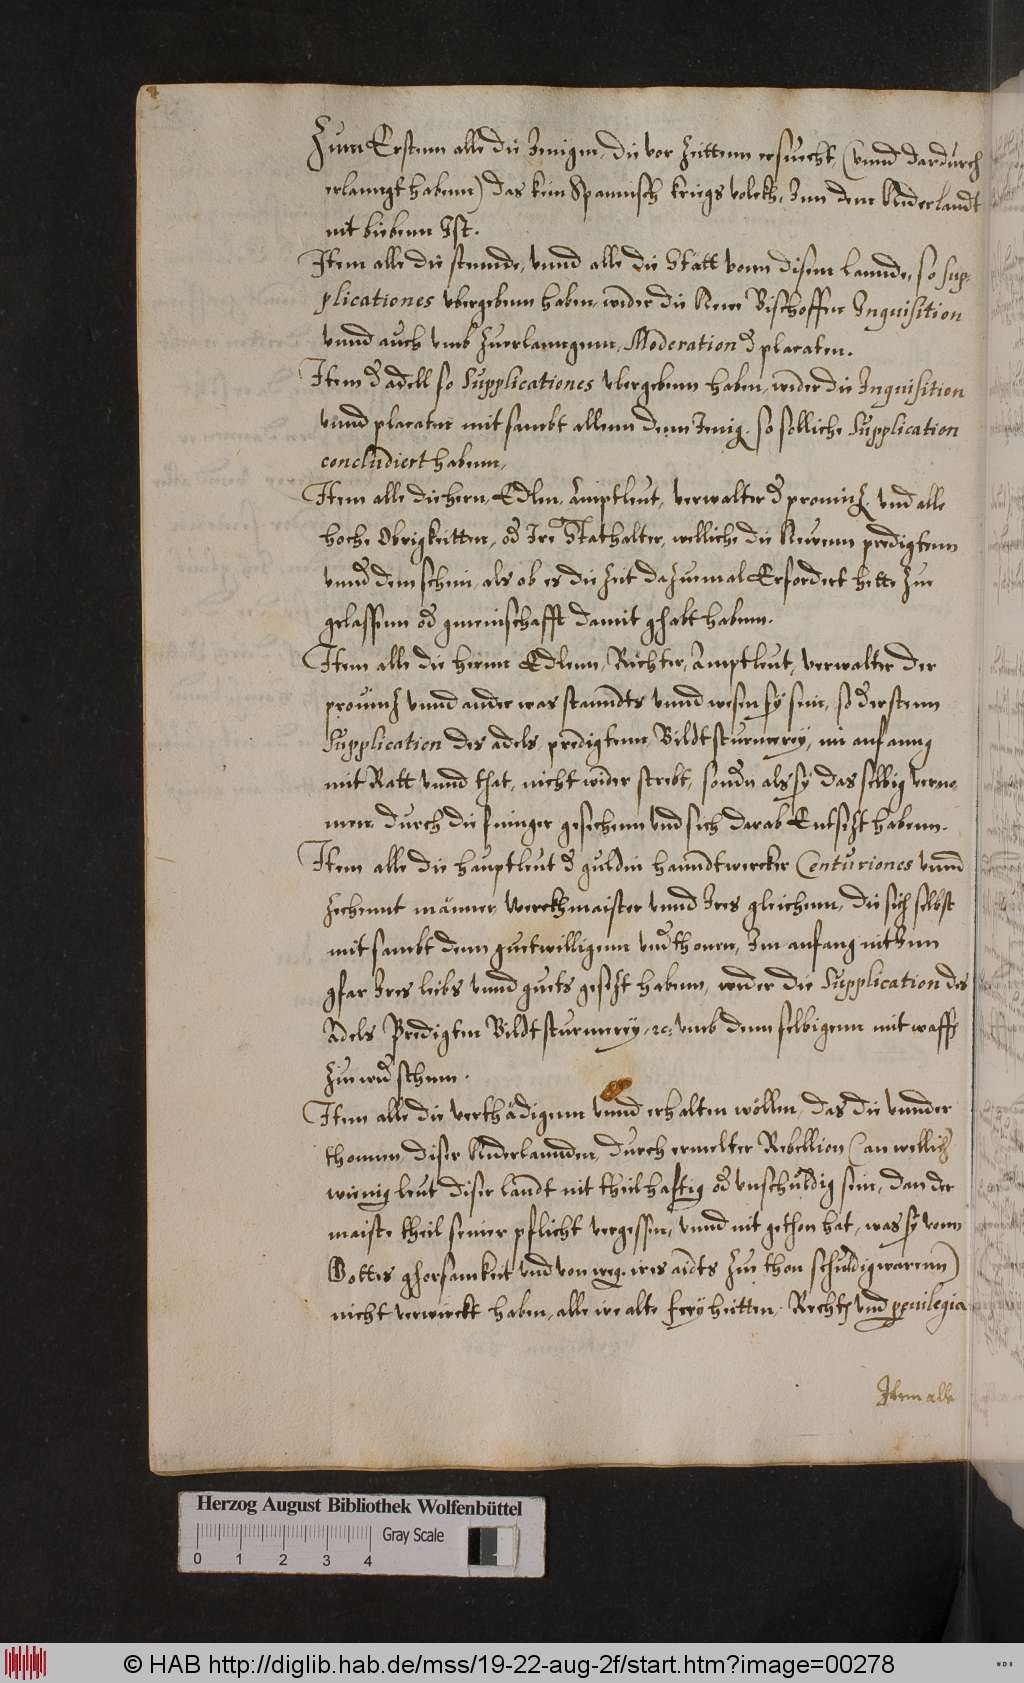 Zum Ersten alle die Jenigen, die vor Zeittenn ersuecht, (vnnd dardurch
erlanngt habenn) das kein Spannisch kriegs volckh, Inn dem Niderlandt
nit bliebenn Ist.
Item alle die stennde, vnnd alle die Stätt vonn disem lannde, so sup-
plicationes vbergebenn haben, wider die Newe Bischoffen Inquisition
vnnd auch vmb Zuerlanngenn, Moderation d placaten.
Item d adell so Supplicationes vbergebenn haben, wider die Inquisition
vnnd placaten mit sambt allenn denn Jenig. so solliche Supplication
concludiert habenn,
Item alle die hern, Edlen, Amptleut, verwalter d prouintz, vnd alle
hoche Obrigkeitten, od Ire Stathalter, welliche die Newenn predigtenn
vnnd dem schein, als ob es die Zeit dazuemal Erfordert hette Zue
gelassenn od gmeinschafft damit ghabt habenn.
Item alle die herrnn Edlenn, Richter, Amptleut, verwalter der
prouintz vnnd ander was stanndts vnnd wesen sy sein, so d erstenn
Supplication des adels, predigtenn, Bildtsturmerey, im anfanng
mit Ratt vnnd that, nicht wider strebt, sondn als sy das selbig verno
men, durch die finnger gesechenn vnd sich darab Entsetzt habenn.
Item alle die hauptleut d guldin hanndtwercker Centuriones vnnd
Zechennt männer, Werckhmaister vnnd Ires gleichenn, die sich selbst
mit sambt denn guetwilligenn vndthonen, Im anfang nit Inn
gfar Ires leibs vnnd guets gesetzt habenn, wider die Supplication des
Adels Predigten Bildtsturmerey, etc: vmb denn selbigenn mit waffen
Zuwidstehnn.
Item alle die verthädigenn vnnd erhalten wöllen, das die vnnder
thonnen, diser Niderlannden, durch ermelter Rebellion (an wellich
wienig leut diser landt nit theilhafftig od vnschuldig sein, dan der
maiste theil seiner pflicht vergessen, vnnd nit gethon hat, was sy vonn
Gottes ghorsamkeit vnd von weg. ires aidts Zue thon schuldig warenn)
nicht verwirckt haben, alle ire alte freyheitten, Recht, vnd priuilegia
Item alle
Herzog August Bibliothek Wolfenbüttel
Gray Scale
0 1 2 3 4
© HAB http://diglib.hab.de/mss/19-22-aug-2f/start.htm?image=00278